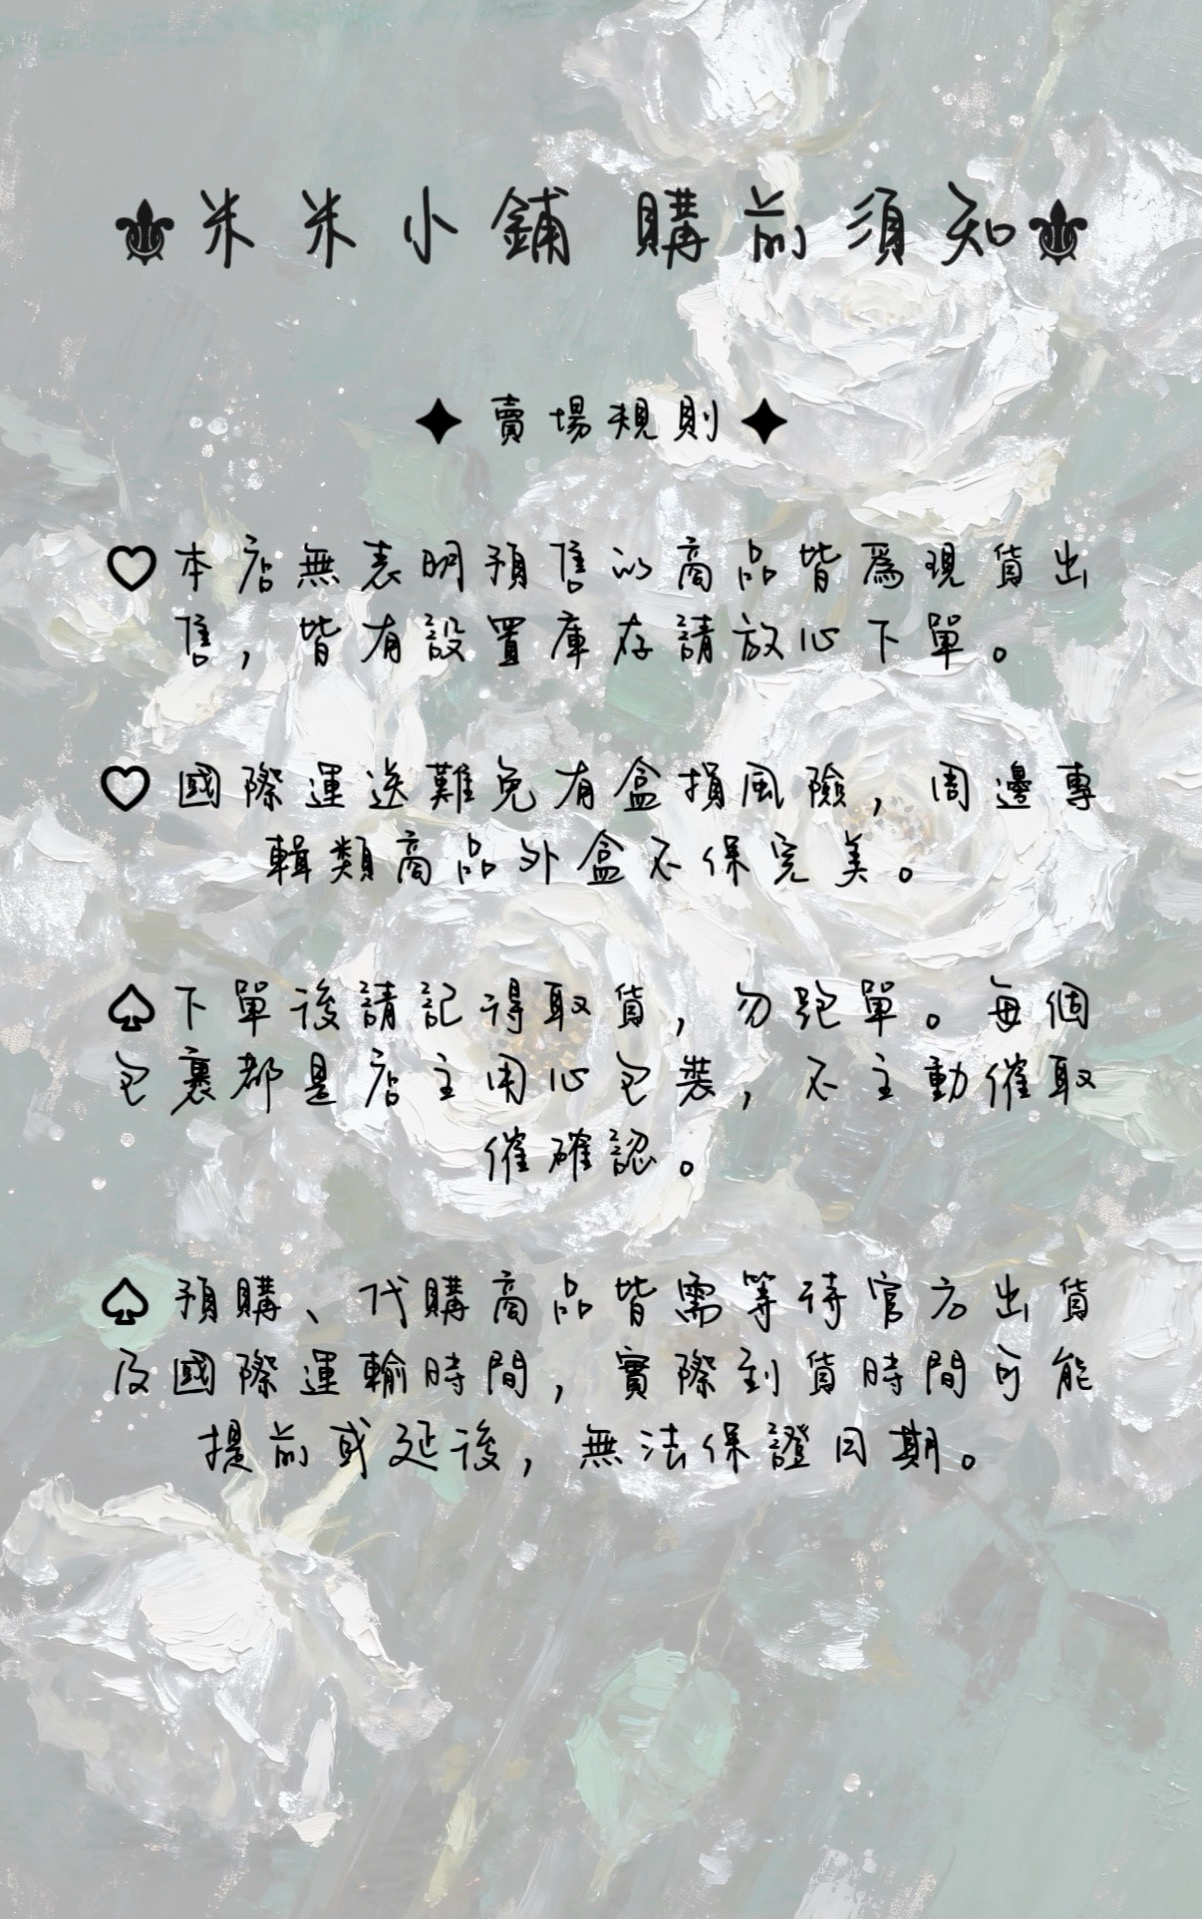 ⚜米米小鋪 購前須知⚜
✦ 賣場規則 ✦
♡本店無表明預售的商品皆為現貨出
售，皆有設置庫存請放心下單。
♡國際運送難免有盒損風險，周邊專
輯類商品外盒不保完美。
♤下單後請記得取貨，勿跑單。每個
包裹都是店主用心包裝，不主動催取
催確認。
♤預購、代購商品皆需等待官方出貨
及國際運輸時間，實際到貨時間可能
提前或延後，無法保證日期。